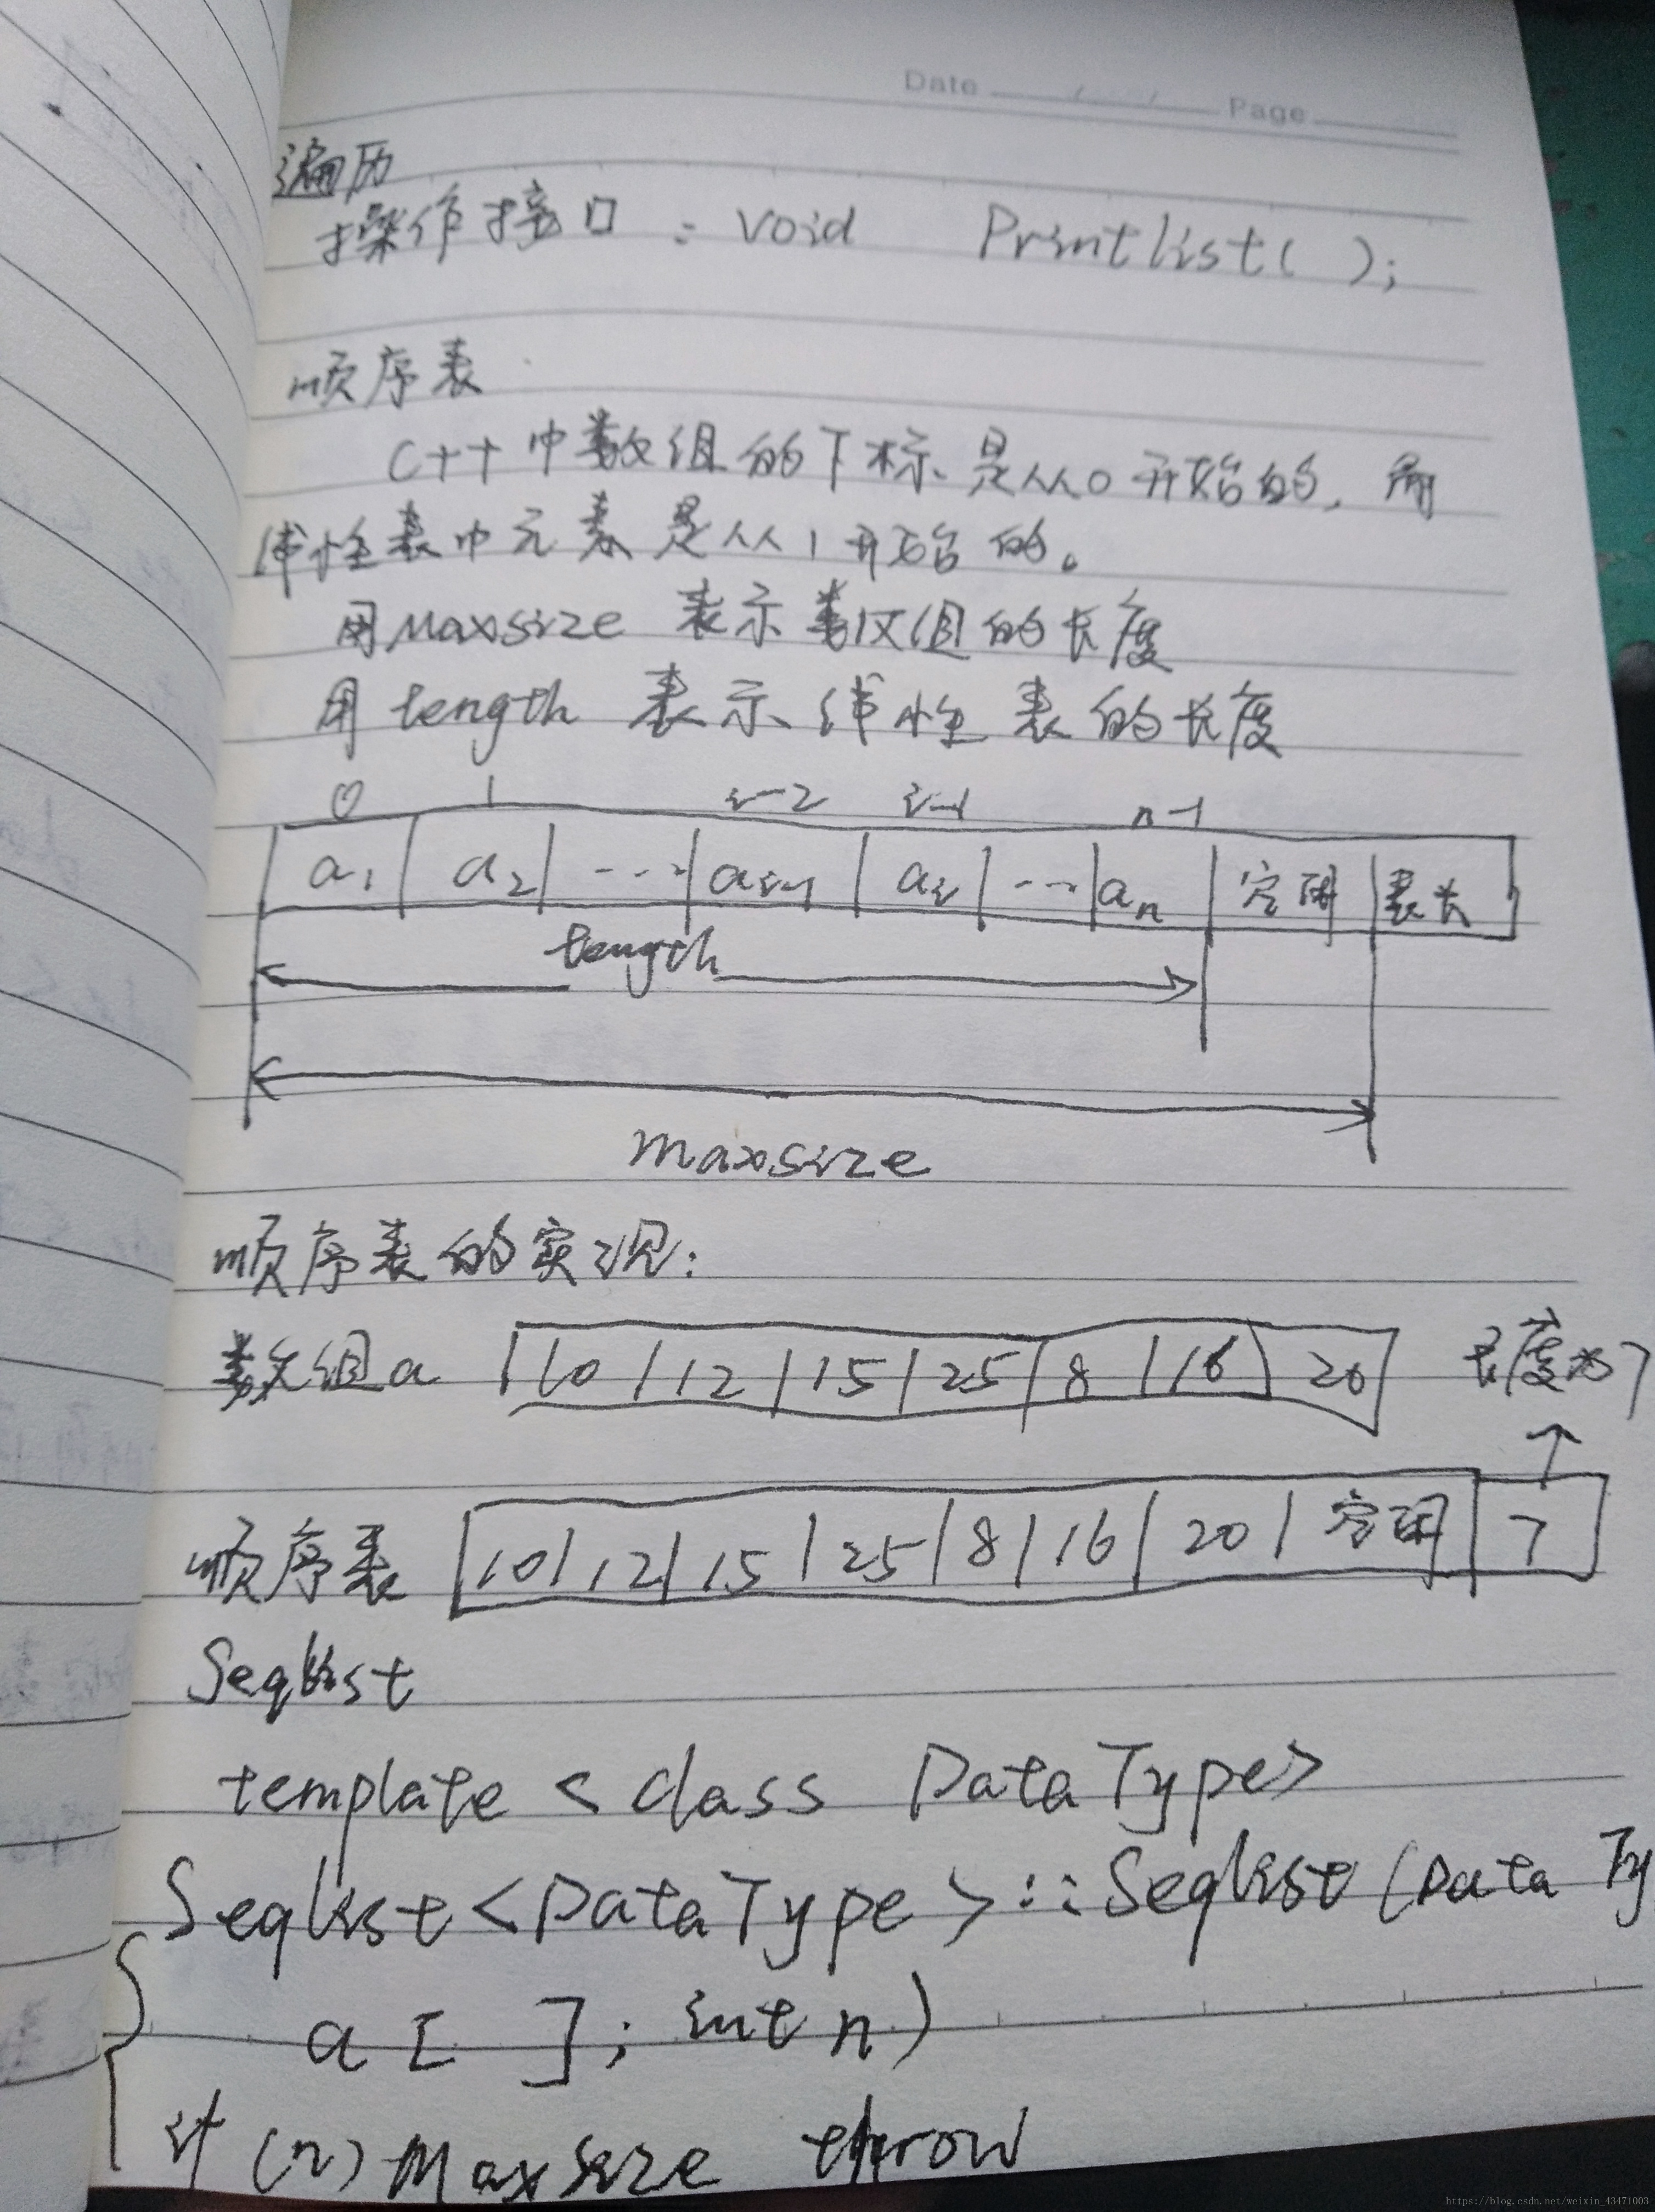 Date / / Page
遍历
操作接口：void Printlist( );
顺序表
C++中数组的下标是从0开始的，而
线性表中元素是从1开始的。
用Maxsize 表示数组的长度
用length 表示线性表的长度
0 1 i-2 i-1 n-1
a1 a2 ... ai-1 ai ... an 空闲 表长
length
maxsize
顺序表的实现：
数组a 10 12 15 25 8 16 20 长度为7
顺序表 10 12 15 25 8 16 20 空闲 7
Seqlist
template <class DataType>
Seqlist<DataType>::Seqlist(Data Ty
a[ ]; int n)
{
if (n>Maxsize throw
https://blog.csdn.net/weixin_43471003